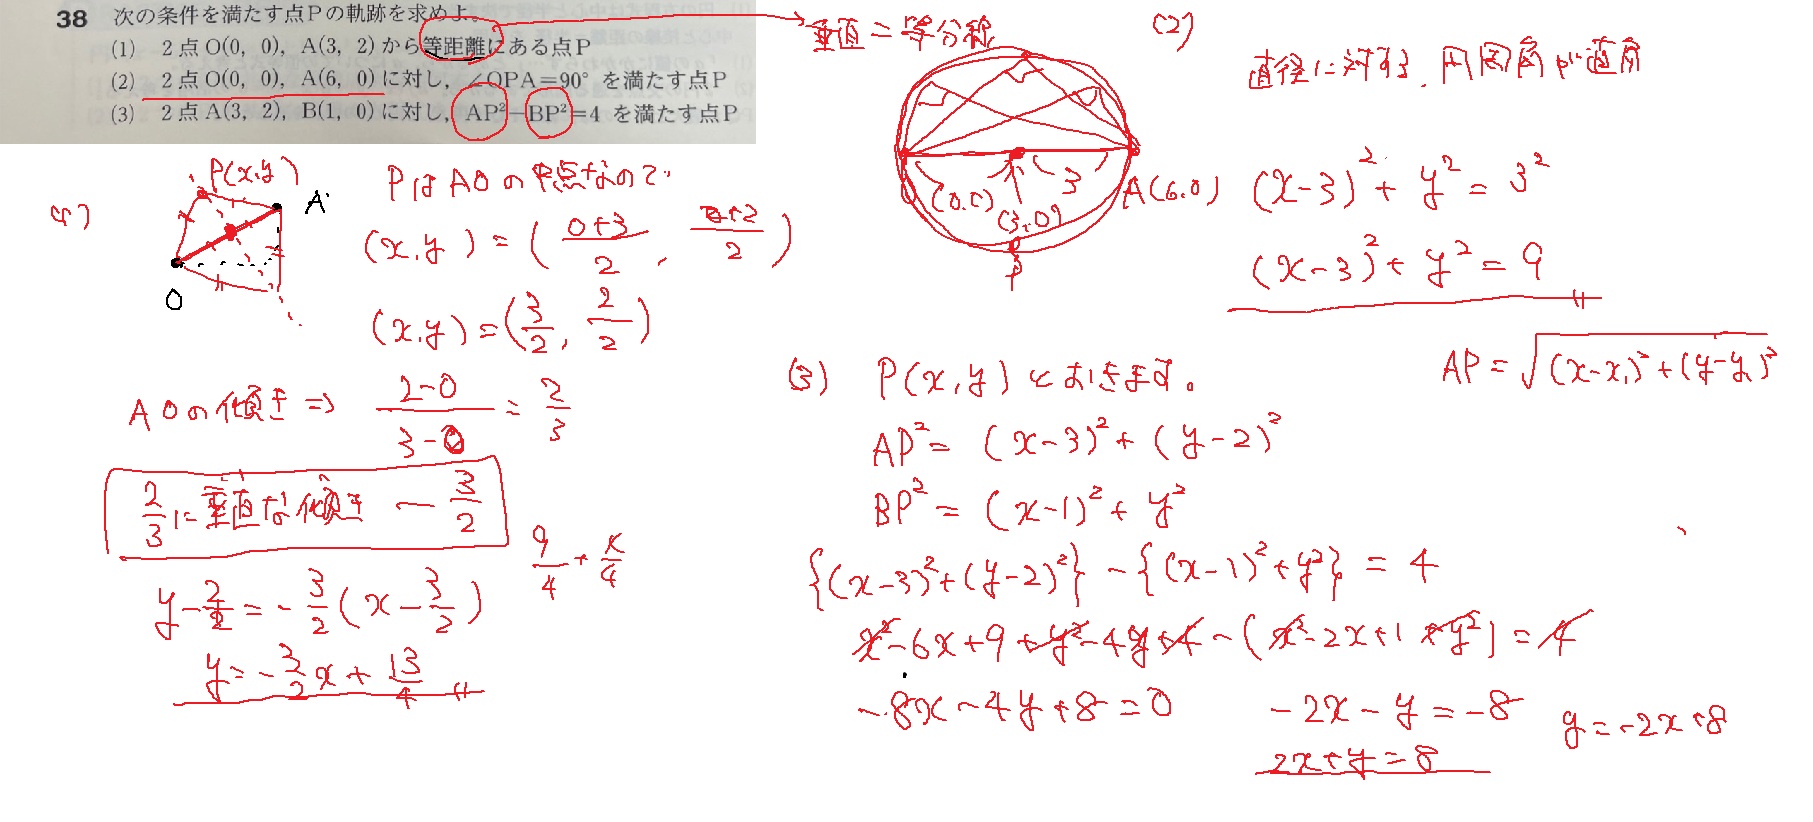 38 次の条件を満たす点Pの軌跡を求めよ。
(1) 2点O(0, 0), A(3, 2)から等距離にある点P
(2) 2点O(0, 0), A(6, 0)に対し, ∠OPA=90° を満たす点P
(3) 2点A(3, 2), B(1, 0)に対し, AP²−BP²=4 を満たす点P
垂直二等分線
(1)
P(x,y)
A
O
PはAOの中点なので、
(x,y) = (0+3/2, 0+2/2)
(x,y) = (3/2, 2/2)
AOの傾き ⇒ 2-0/3-0 = 2/3
2/3に垂直な傾き −3/2
9/4 + 4/4
y−2/2 = −3/2(x−3/2)
y=−3/2x+13/4
(2)
直径に対する、円周角が直角
(0,0) (3,0) 3 A(6,0)
P
(x−3)²+y²=3²
(x−3)²+y²=9
(3) P(x,y)とおきます。
AP=√(x−x₁)²+(y−y₁)²
AP²=(x−3)²+(y−2)²
BP²=(x−1)²+y²
{(x−3)²+(y−2)²}−{(x−1)²+y²}=4
x²−6x+9+y²−4y+4−(x²−2x+1+y²)=4
−8x−4y+8=0
−2x−y=−8
2x+y=8
y=−2x+8